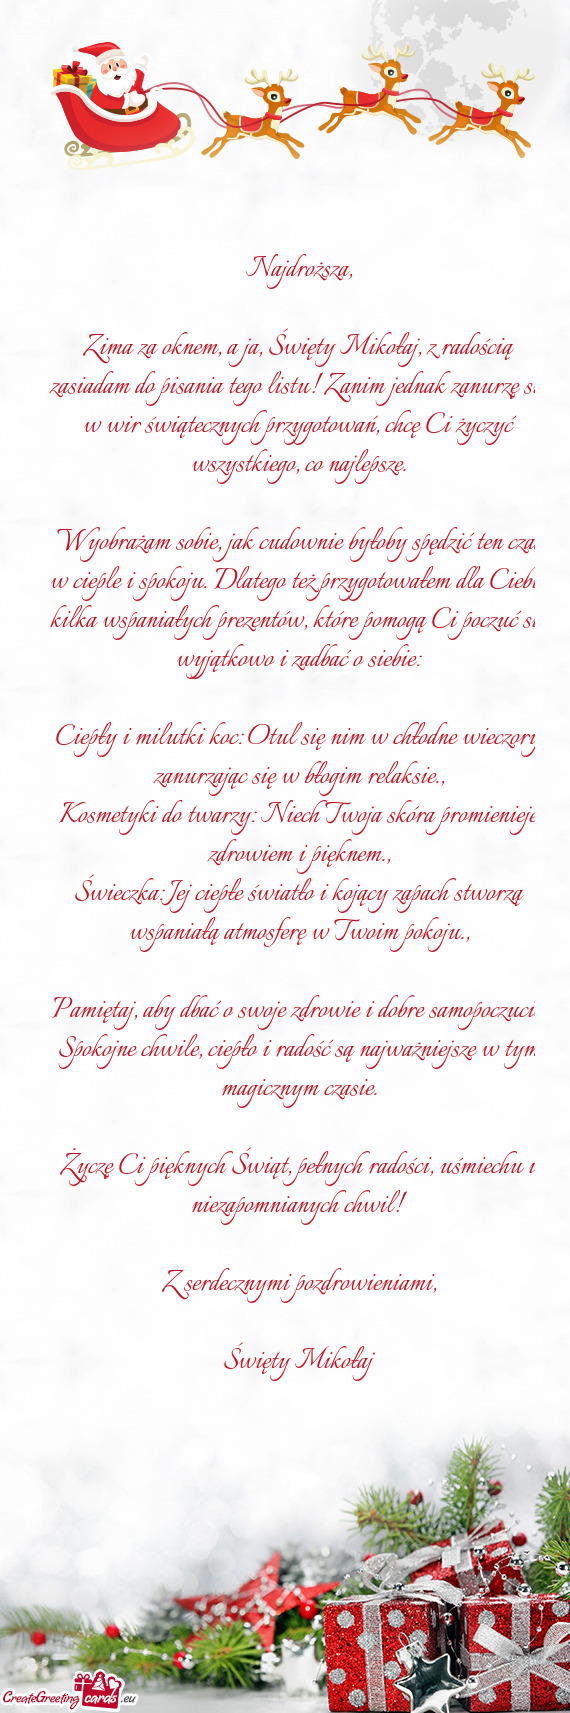 Najdroższa,
Zima za oknem, a ja, Święty Mikołaj, z radością
zasiadam do pisania tego listu! Zanim jednak zanurzę si
w wir świątecznych przygotowań, chcę Ci życzyć
wszystkiego, co najlepsze.
Wyobrażam sobie, jak cudownie byłoby spędzić ten cza
w cieple i spokoju. Dlatego też przygotowałem dla Ciebi
kilka wspaniałych prezentów, które pomogą Ci poczuć si
wyjątkowo i zadbać o siebie:
Ciepły i milutki koc: Otul się nim w chłodne wieczory
zanurzając się w błogim relaksie.,
Kosmetyki do twarzy: Niech Twoja skóra promienieje
zdrowiem i pięknem.,
Świeczka: Jej ciepłe światło i kojący zapach stworzą
wspaniałą atmosferę w Twoim pokoju.,
Pamiętaj, aby dbać o swoje zdrowie i dobre samopoczuci
Spokojne chwile, ciepło i radość są najważniejsze w tym
magicznym czasie.
Życzę Ci pięknych Świąt, pełnych radości, uśmiechu i
niezapomnianych chwil!
Z serdecznymi pozdrowieniami,
Święty Mikołaj
CreateGreeting cards .eu